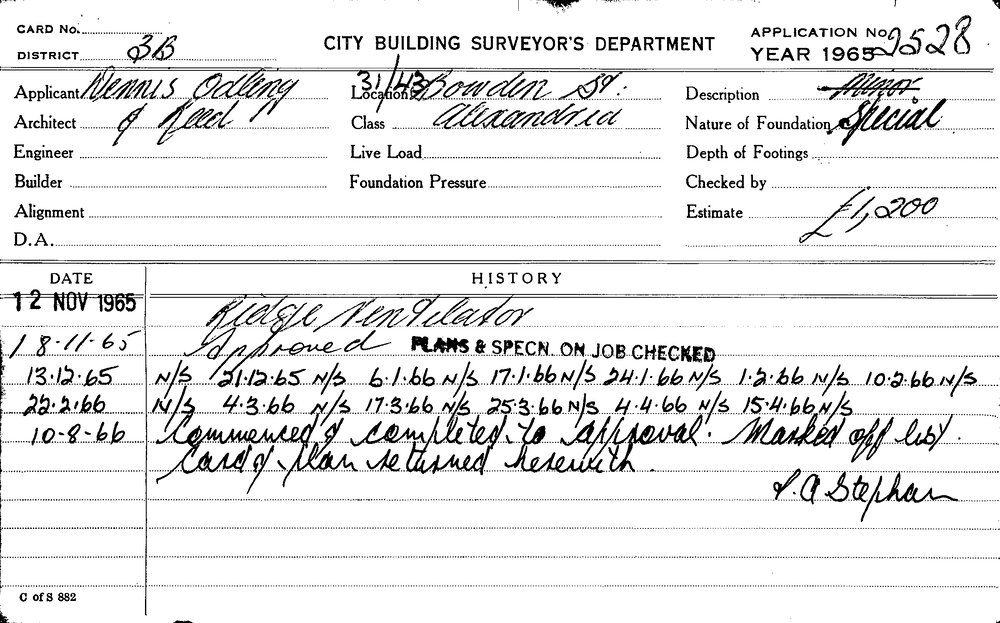 CARD No.
DISTRICT 3B
CITY BUILDING SURVEYOR'S DEPARTMENT
APPLICATION No 2528
YEAR 1965
Applicant Dennis Odling
Location 31/43 Bowden St:
Description Minor
Architect & Reed
Class Alexandria
Nature of Foundation Special
Engineer
Live Load
Depth of Footings
Builder
Foundation Pressure
Checked by
Alignment
Estimate £1,200
D.A.
DATE
HISTORY
12 NOV 1965 Ridge Ventilator
18-11-65 Approved PLANS & SPECN. ON JOB CHECKED
13.12.65 N/S 21.12.65 N/S 6.1.66 N/S 17.1.66 N/S 24.1.66 N/S 1.2.66 N/S 10.2.66 N/S
22.2.66 N/S 4.3.66 N/S 17.3.66 N/S 25.3.66 N/S 4.4.66 N/S 15.4.66 N/S
10-8-66 Commenced & completed to approval. Marked off list.
Card & plan returned herewith.
Stephan
C of S 882